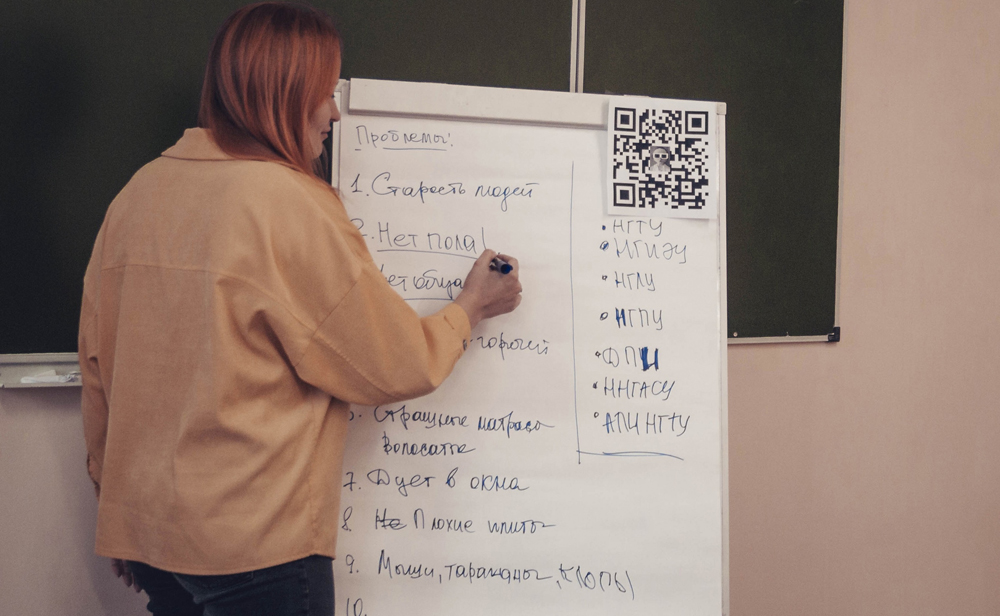 Проблемы!
1. Старость людей
2. Нет пола!
горячей
Страшные матрасы
Волосатые
7. Дует в окна
8. Не Плохие плиты
9. Мыши, тараканы, клопы
10.
• НГТУ
• НГИЭУ
• НГЛУ
• НГПУ
• ДПИ
• ННГАСУ
• АПИ НГТУ